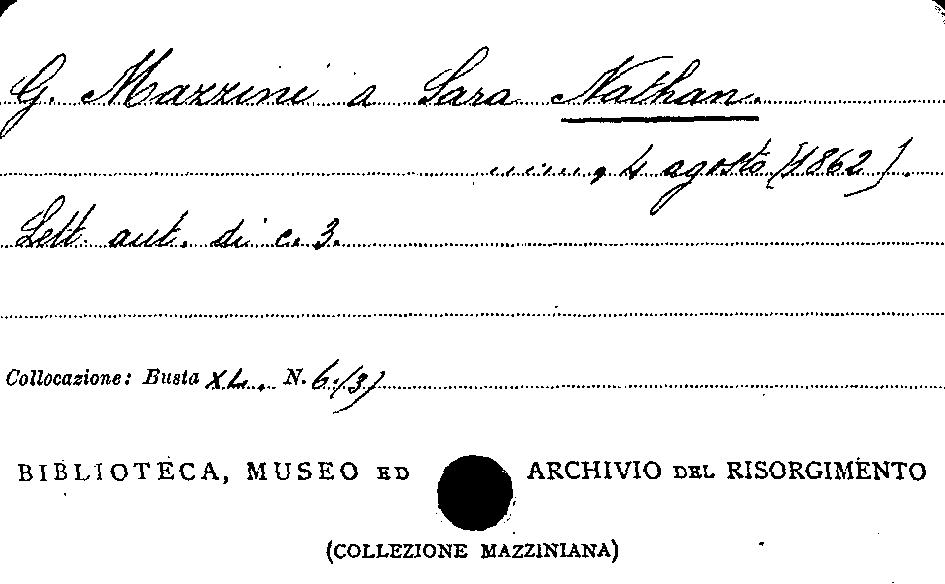 G. Mazzini a Sara Nathan.
......, 4 agosto [1862].
Lett. aut. di c. 3.
Collocazione: Busta XL. N. 6.(3)
BIBLIOTECA, MUSEO ED ARCHIVIO DEL RISORGIMENTO
(COLLEZIONE MAZZINIANA)